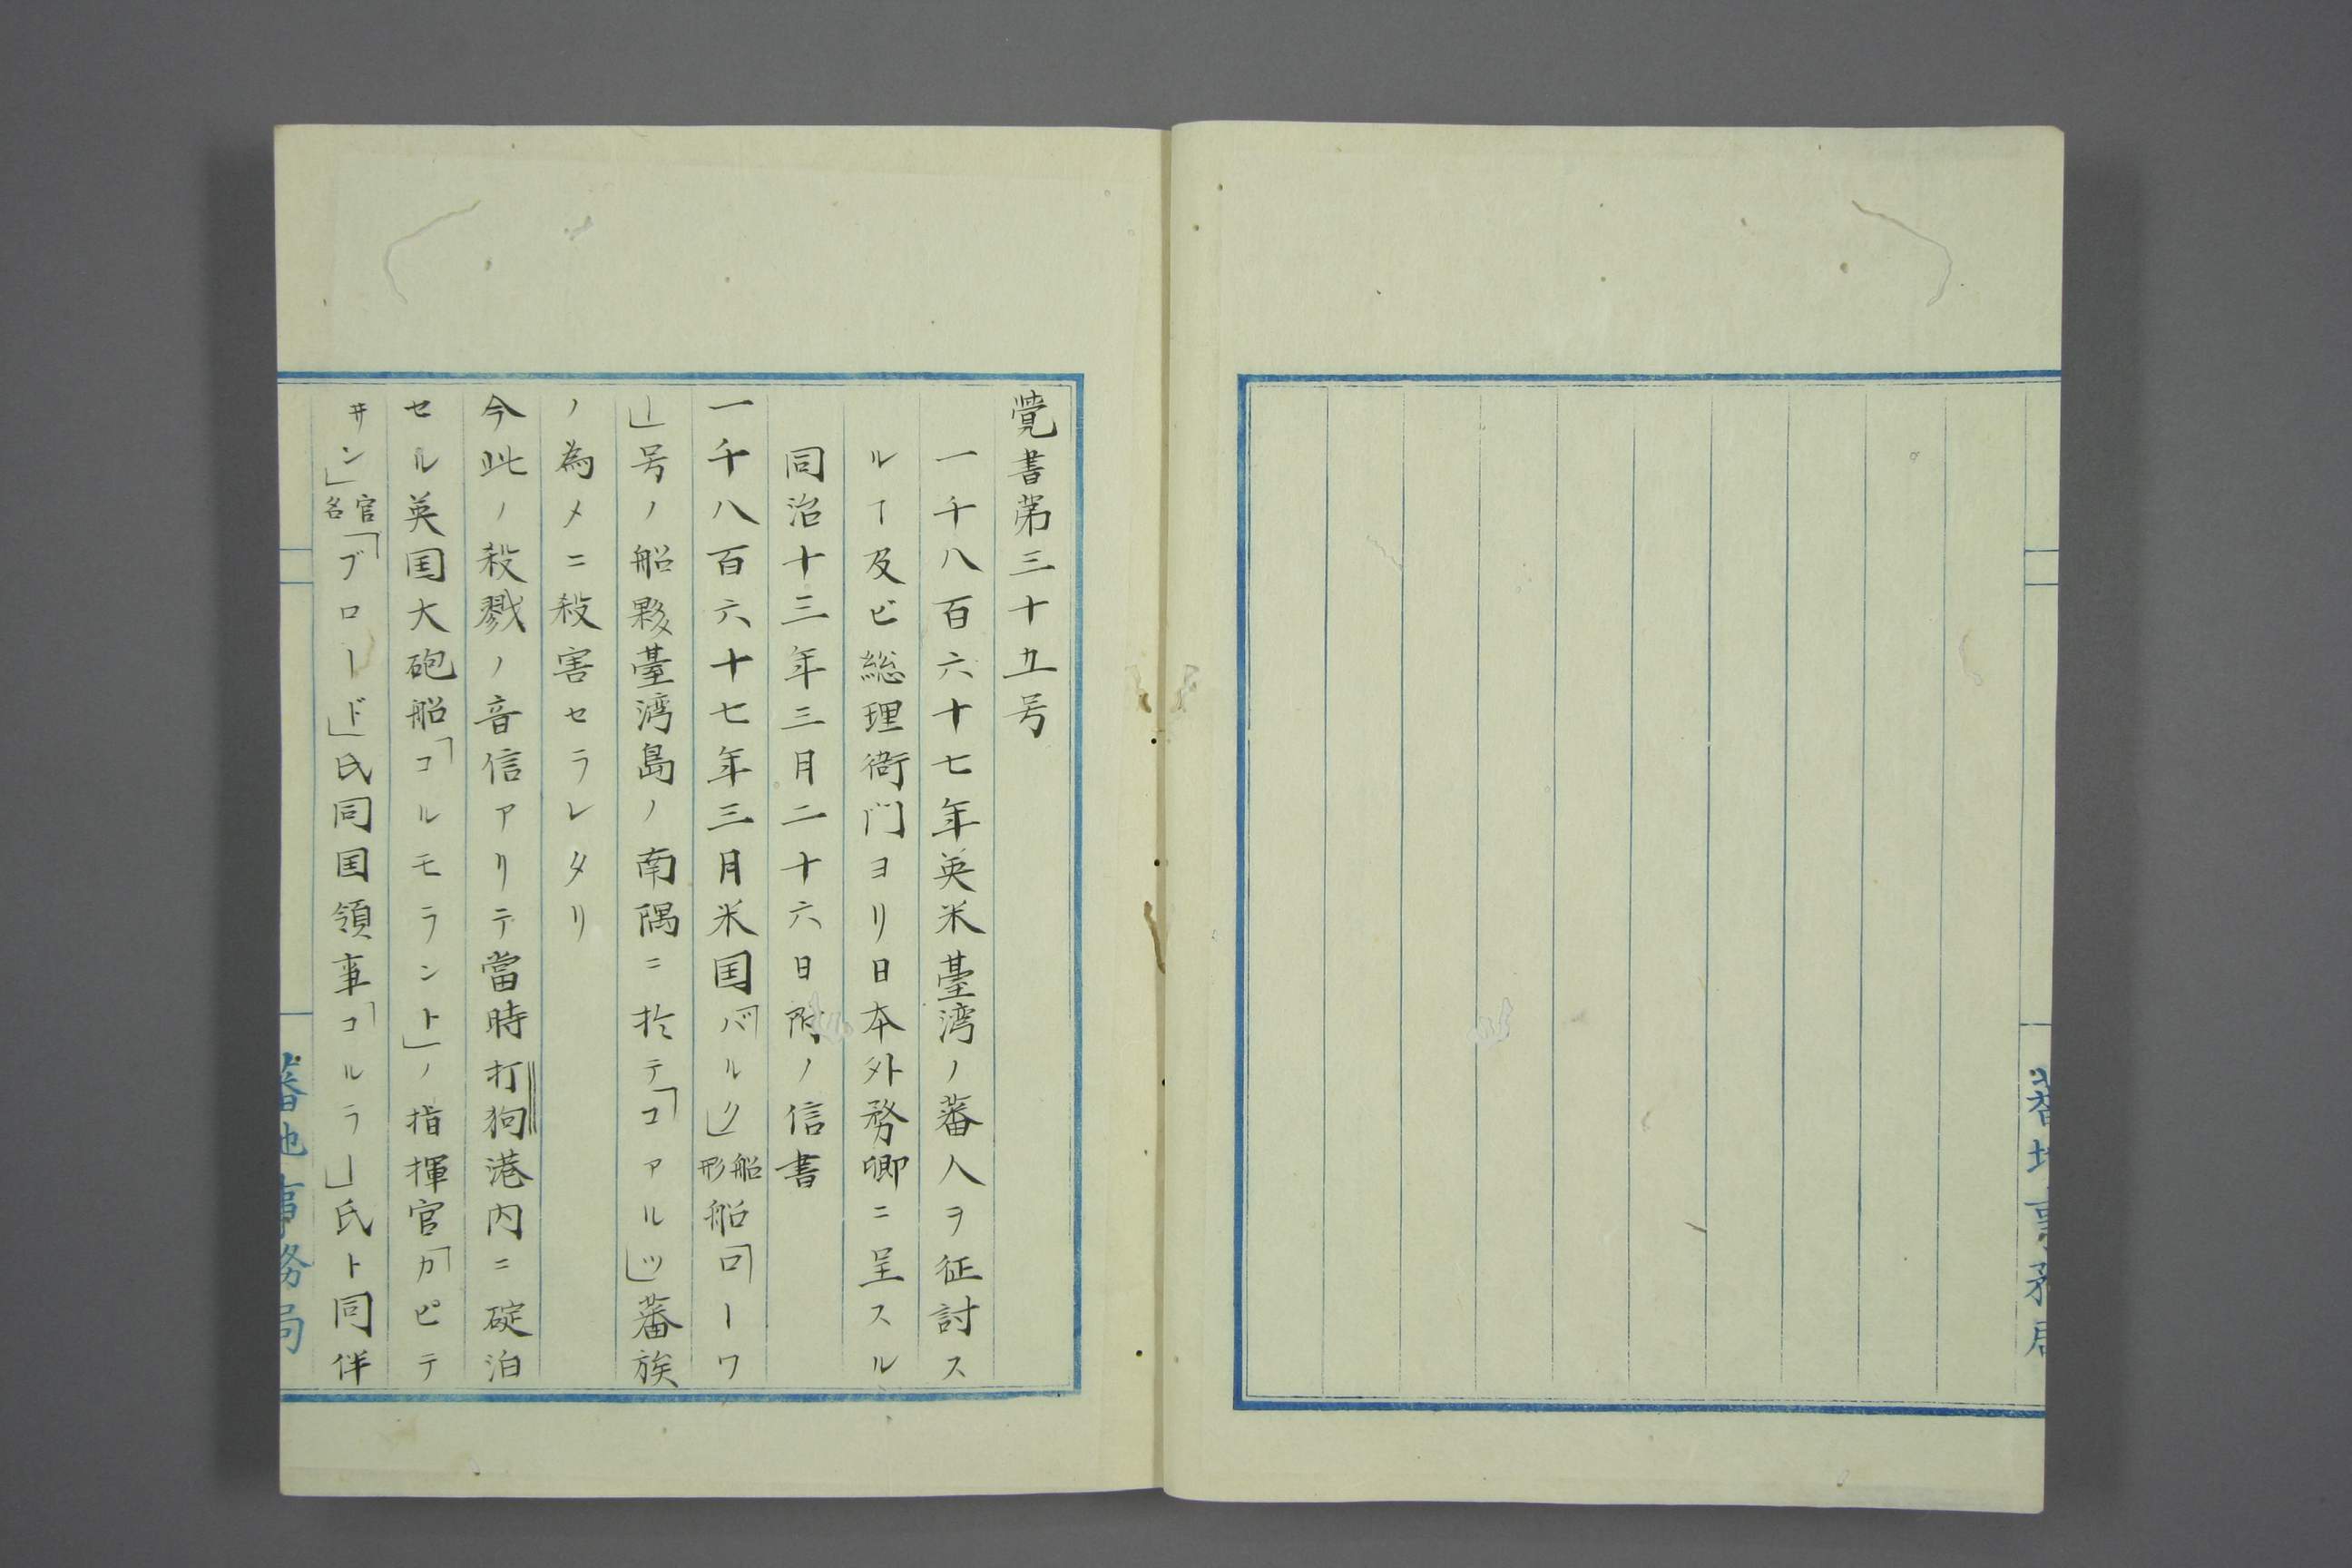 蕃地事務局
覺書第三十五号
一千八百六十七年英米臺湾ノ蕃人ヲ征討ス
ルヿ及ビ総理衙门ヨリ日本外務卿ニ呈スル
同治十三年三月二十六日附ノ信書
一千八百六十七年三月米国「バルク」船形船「ローワ
ー」号ノ船夥臺湾島ノ南隅ニ於テ「コアルツ」蕃族
ノ為メニ殺害セラレタリ
今此ノ殺戮ノ音信アリテ當時打狗港内ニ碇泊
セル英国大砲船「コルモラント」ノ指揮官「カピテ
ヰン」官名「ブロード」氏同国領事「コルラー」氏ト同伴
蕃地事務局